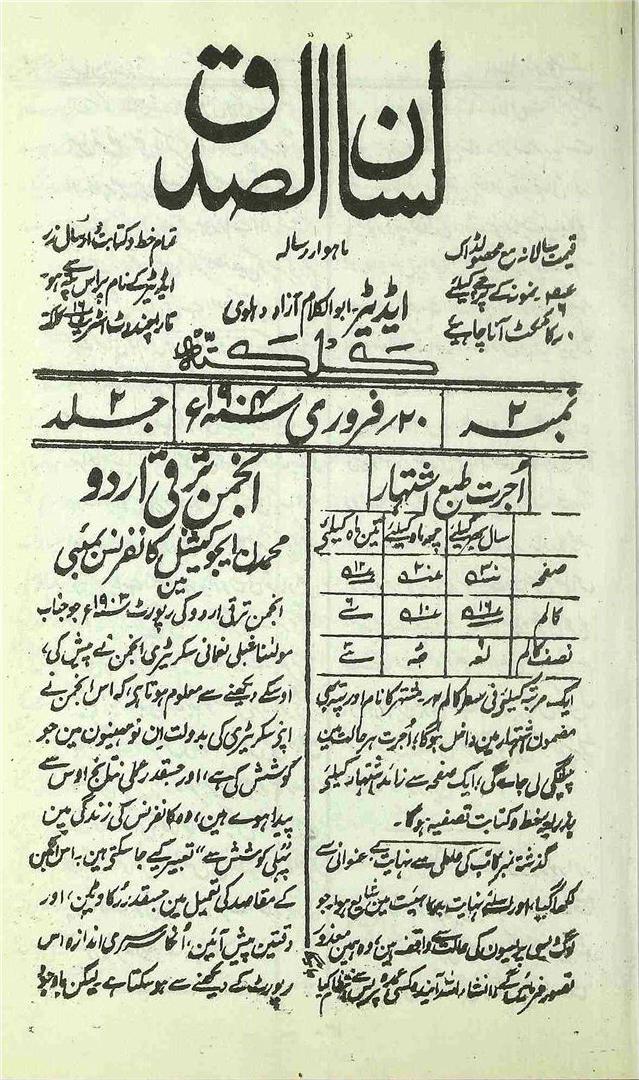 لسان الصدق
قیمت سالانہ مع محصولڈاک
نمونہ کے پرچے کیلئے
۱ر کا ٹکٹ آنا چاہیے
ماہوار رسالہ
ایڈیٹر ابوالکلام آزاد دہلوی
تمام خط و کتابت و ارسال زر
ایڈیٹر کے نام پر اس پتے سے ہو
تاراچند دت اسٹریٹ کلکتہ
کلکتہ
نمبر ۲
۲۰ر فروری ۱۹۰۴ سنہ ء
جلد ۲
اُجرت طبع اشتہار
سال بھر کیلئے چھ ماہ کیلئے تین ماہ کیلئے
صفحہ
کالم
نصف کالم
ایک مرتبہ کیلئے فی سطر کالم ۲ر مشتہر کا نام اور پتہ بھی
مضمون اشتہار مین داخل ہوگا، اُجرت ہر حالت مین
پیشگی لی جاے گی، ایک صفحہ سے زائد اشتہار کیلئے
بذریعہ خط و کتابت تصفیہ ہوگا۔
گذشتہ نمبر کاتب کی غلطی سے نہایت بے عنوانی سے
لکھا گیا، اور اسلئے نہایت بدنما ہیئت مین شایع ہوا، جو
لوگ دیسی پریسون کی حالت سے واقف ہین، وہ ہمین معذور
تصور فرمائینگے، انشاء اللہ آیندہ کسی عمدہ پریس کا انتظام کیا
انجمن ترقی اردو
محمڈن ایجوکیشنل کانفرنس بمبئی
مین
انجمن ترقی اردو کی رپورٹ سنہ ۱۹۰۳ء جو جناب
مولٰنا شبلی نعمانی سکرٹیری انجمن نے پیش کی،
اوسکے دیکھنے سے معلوم ہوتا ہے، کہ اس انجمن نے
اپنے سکریٹری کی بدولت اِن نو مہینون مین جو
کوشش کی ہے، اور جسقدر عملی نتایج اوس سے
پیدا ہوے ہین، وہ کانفرنس کی زندگی مین
"پہلی کوشش سے" تعبیر کیے جا سکتے ہین۔ اس انجمن
کے مقاصد کی تعمیل مین جسقدر رُکاوٹین، اور
دقتین پیش آئین، اُنکا سرسری اندازہ اس
رپورٹ کے دیکھنے سے ہو سکتا ہے لیکن باوجود